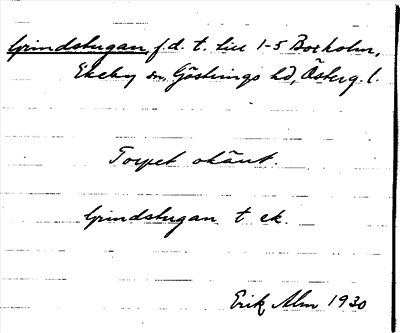 Grindstugan, f.d. t. Lill 1-5 Boxholm,
Ekeby sn, Göstrings hd, Österg. l.
Torpet okänt.
Grindstugan t ek.
Erik Alm 1930